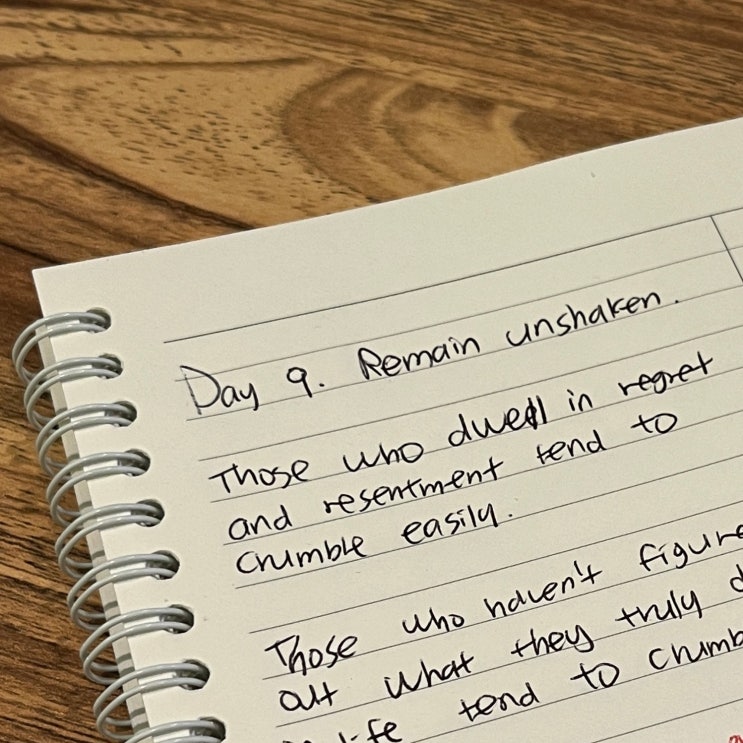 Day 9. Remain unshaken.
Those who dwell in regret
and resentment tend to
crumble easily.
Those who haven't figure
out what they truly d
life tend to crumb